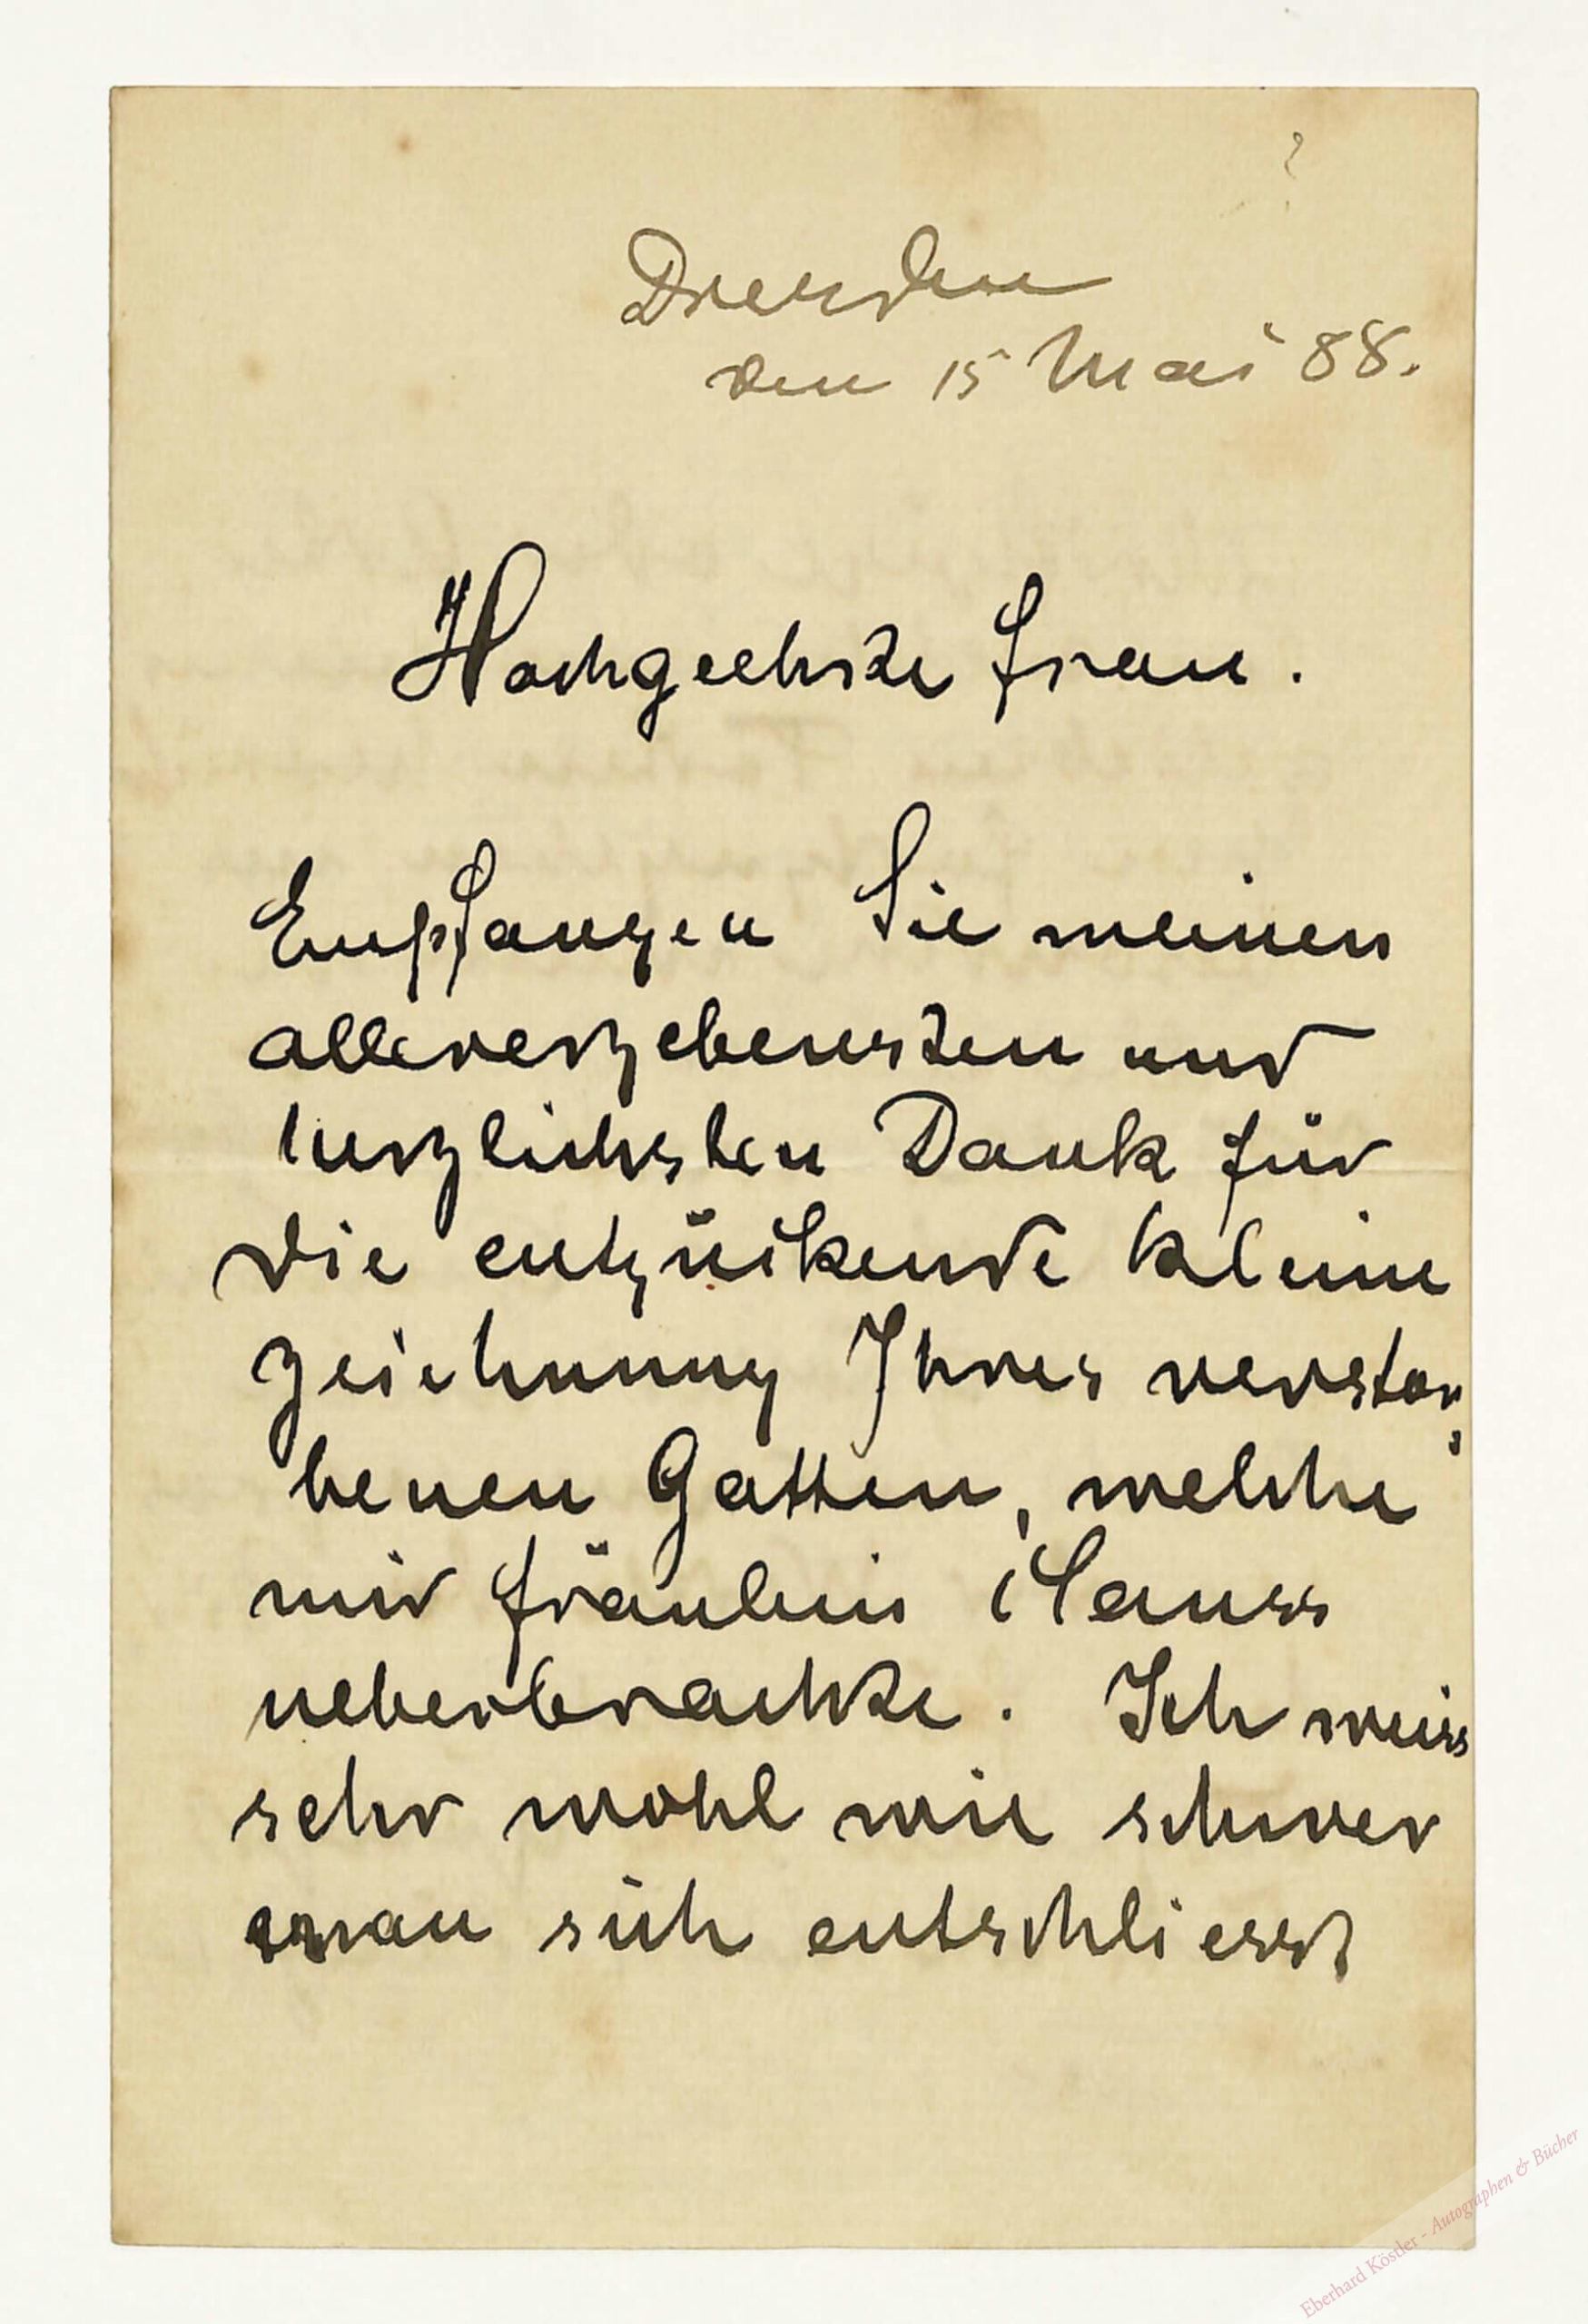 Dresden
den 15 Mai 88.
Hochgeehrte Frau.
Empfangen Sie meinen
allerergebensten und
herzlichsten Dank für
die entzückende kleine
Zeichnung Ihres verstor„
benen Gatten, welche
mir Fräulein
ueberbrachte. Ich weiss
sehr wohl wie schwer
man sich entschliesst
Eberhard Köstler - Autographen & Bücher